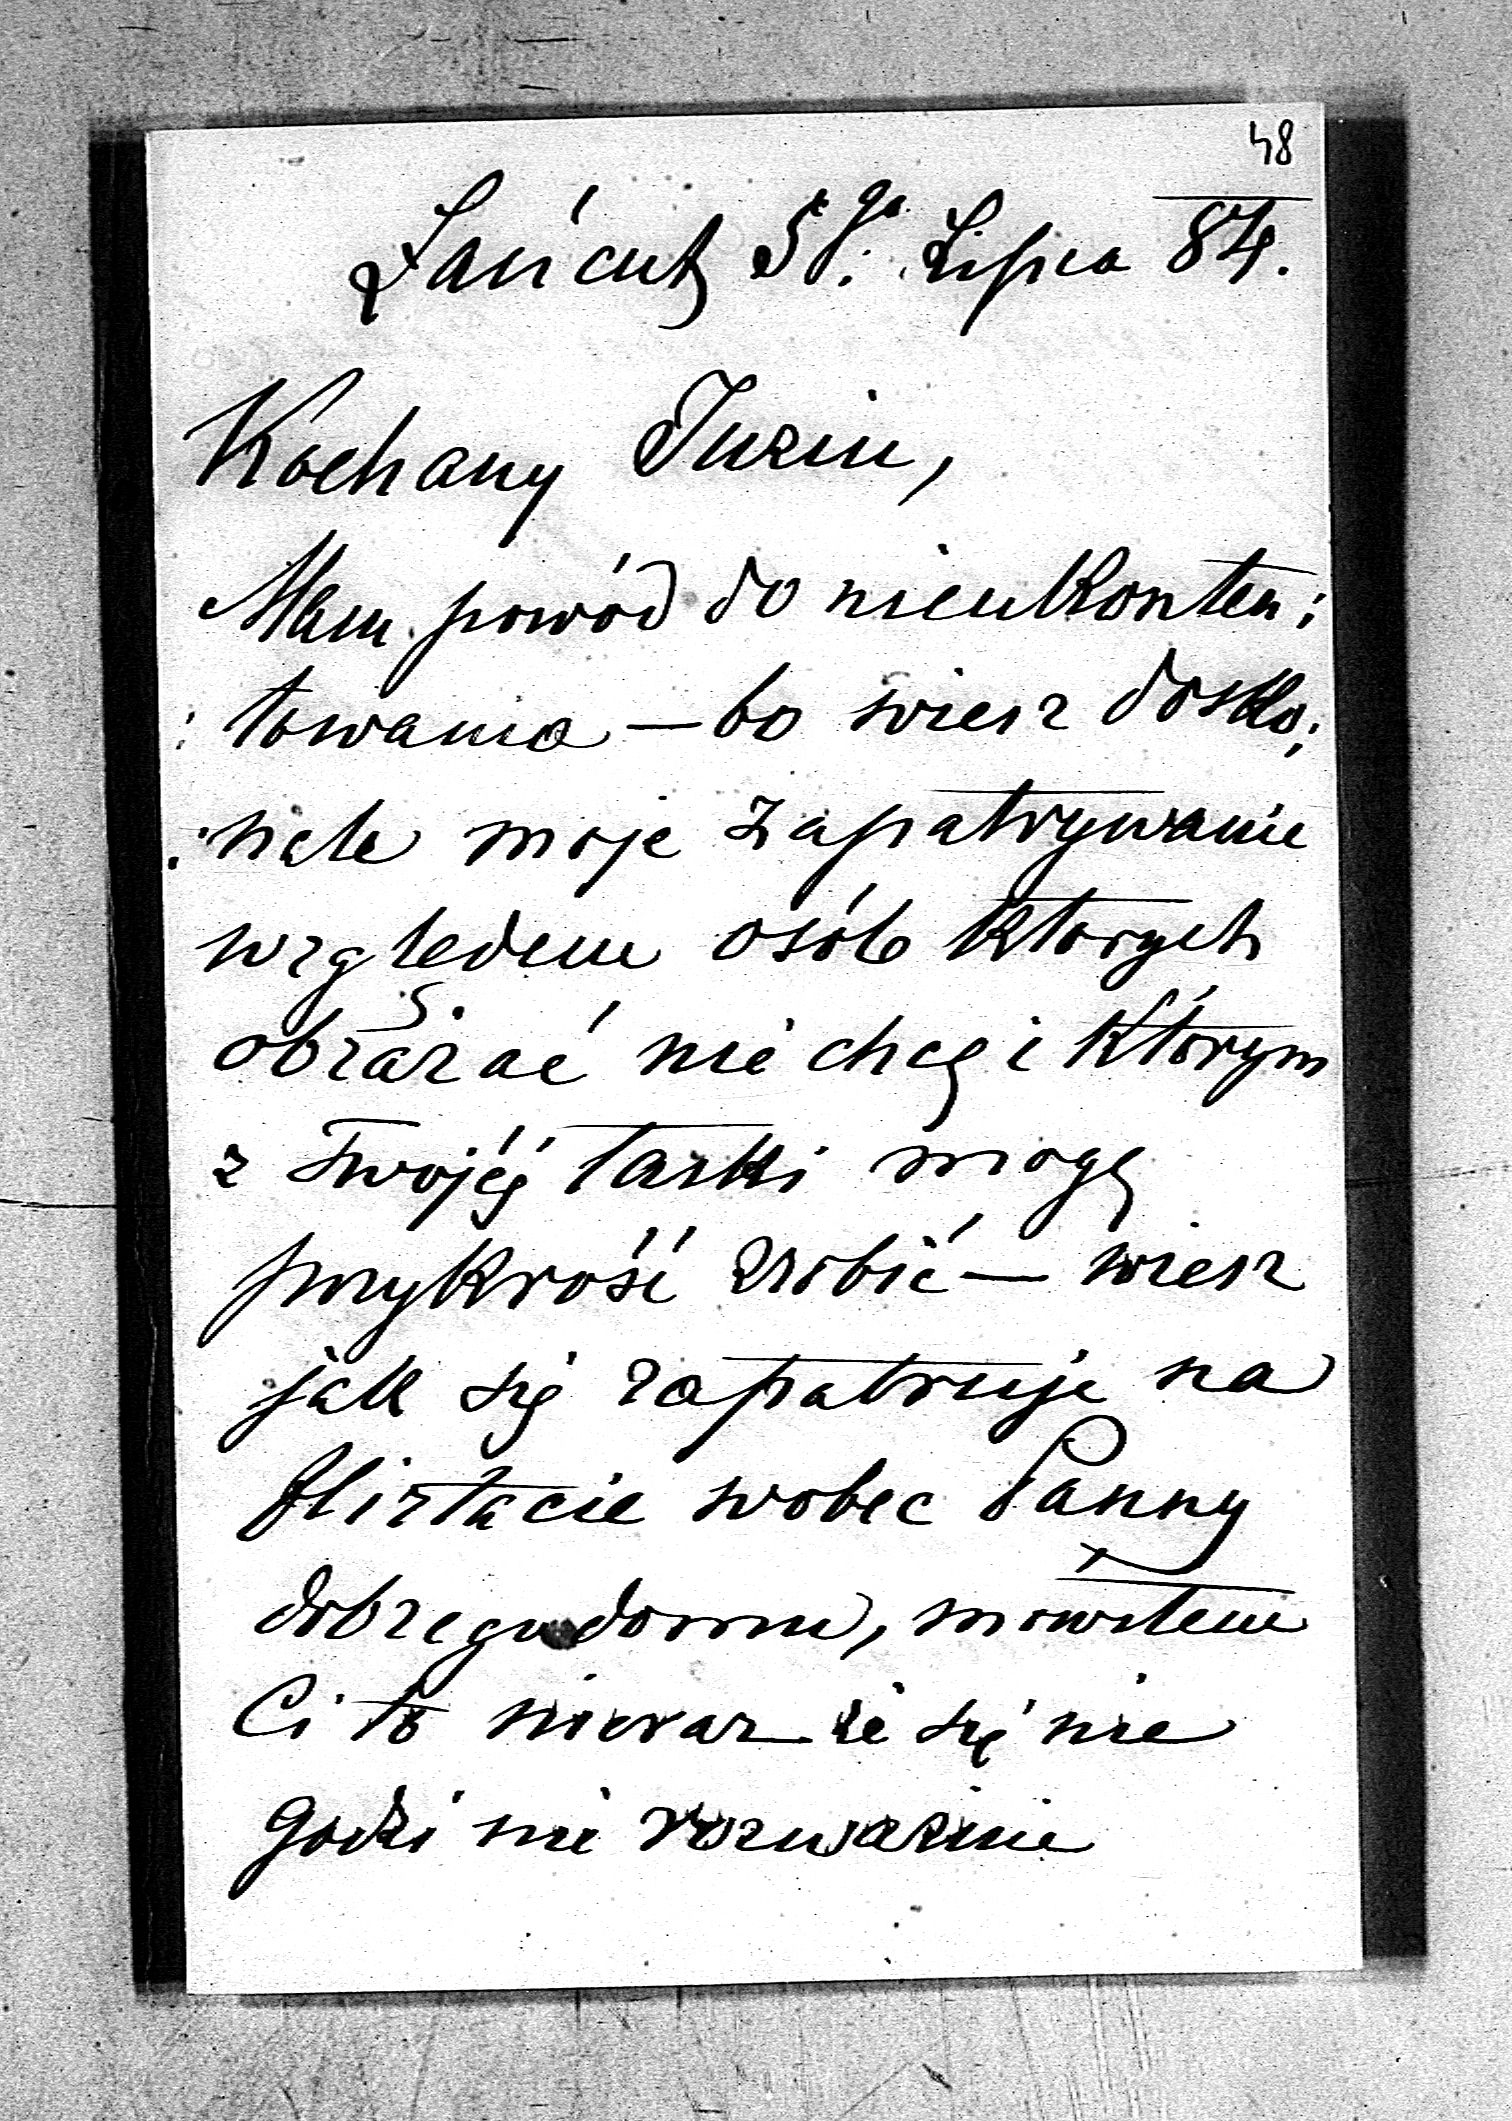 48
Łańcut 5go. Lipca 84.
Kochany Juziu,
Mam powód do nieukonten:
:towania — bo wiesz dosko:
:nale moje zapatrywanie
względem osób ktorych
obrażać nie chcę i którym
z Twojéj łaski mogę
przykrość zrobić — wiesz
jak się zapatruję na
flirtacie wobec Panny
dobrego domu, mowiłem
Ci to nieraz że się nie
godzi nie rozważnie